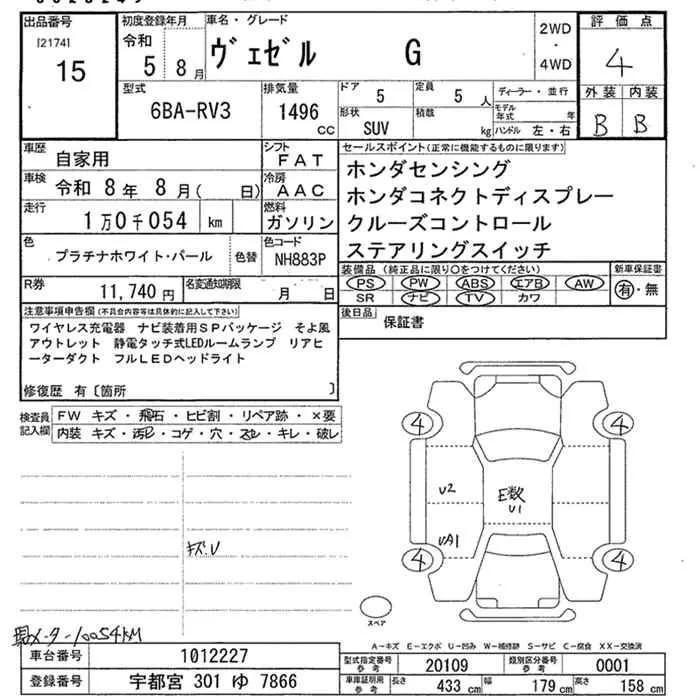 出品番号
[2174]
15
初度登録年月
令和
5 8月
車名・グレード
ヴェゼル G
2WD
・
4WD
評価点
4
外装 内装
B B
型式
6BA-RV3
排気量
1496
cc
ドア 5
定員 5 人
形状
SUV
積載
kg
ディーラー・並行
モデル年式 年
ハンドル 左・右
車歴
自家用
シフト
FAT
車検 令和 8年 8月( 日)
冷房
AAC
走行
1万0千054 km
燃料
ガソリン
色
プラチナホワイト・パール
色替
色コード
NH883P
R券
11,740円
名変通知期限
月 日
セールスポイント(正常に機能するものに限ります)
ホンダセンシング
ホンダコネクトディスプレー
クルーズコントロール
ステアリングスイッチ
装備品(純正品に限り○をつけてください)
PS PW ABS エアB AW
SR ナビ TV カワ
新車保証書
有・無
後日品
保証書
注意事項申告欄(不具合内容等は具体的に記入して下さい)
ワイヤレス充電器 ナビ装着用SPパッケージ そよ風
アウトレット 静電タッチ式LEDルームランプ リアヒ
ーターダクト フルLEDヘッドライト
修復歴 有〔箇所 〕
検査員
記入欄
FW キズ・飛石・ヒビ割・リペア跡・×要
内装 キズ・汚れ・コゲ・穴・スレ・キレ・破レ
キズ.U
4
4
U2
E数
U1
UA1
4
4
スペア
A-キズ E-エクボ U-凹み W-補修跡 S-サビ C-腐食 XX-交換済
現メーター10054KM
車台番号
1012227
登録番号
宇都宮 301 ゆ 7866
型式指定番号
参考
20109
類別区分番号
参考
0001
車庫証明用
参考
長さ
433 cm
幅
179 cm
高さ
158 cm